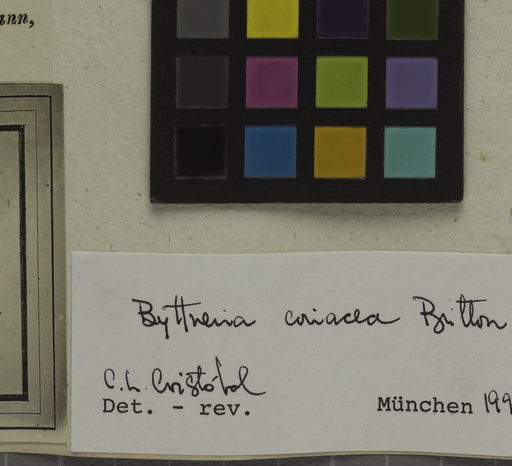 ann,
Byttneria coriacea Britton
C.L. Cristóbal
Det. - rev.
München 199